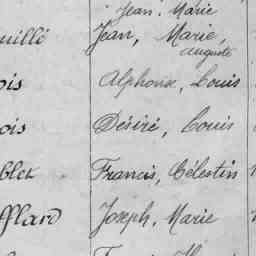 Jean, Marie
uillé Jean, Marie,
Auguste
ois Alphonse, Louis
ois Désiré, Louis
blet Francis, Célestin
fflard Joseph, Marie